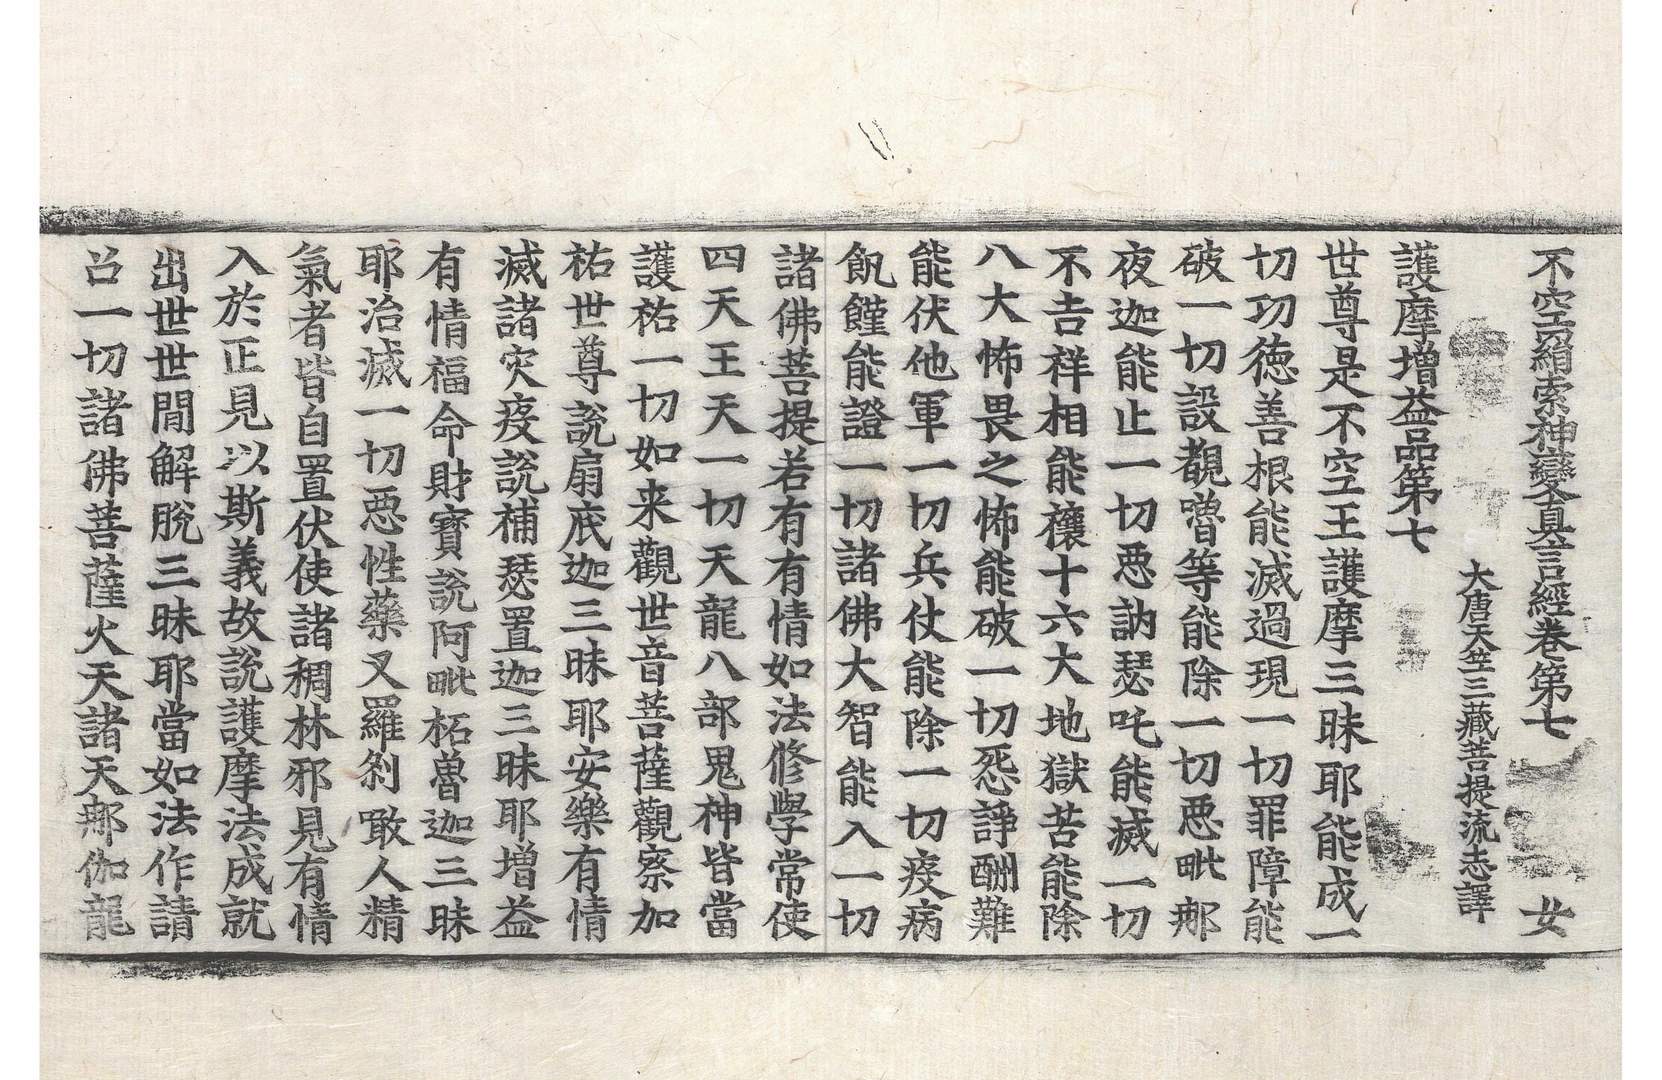 不空羂索神變真言經卷第七 女
大唐天竺三藏菩提流志譯
護摩增益品第七
世尊是不空王護摩三昧耶能成一
切功德善根能滅過現一切罪障能
破一切設覩嚕等能除一切惡毗那
夜迦能止一切惡訥瑟吒能滅一切
不吉祥相能禳十六大地獄苦能除
八大怖畏之怖能破一切怨諍酬難
能伏他軍一切兵仗能除一切疫病
飢饉能證一切諸佛大智能入一切
諸佛菩提若有有情如法修學常使
四天王天一切天龍八部鬼神皆當
護祐一切如来觀世音菩薩觀察加
祐世尊說扇底迦三昧耶安樂有情
滅諸灾疫說補瑟置迦三昧耶增益
有情福命財寶說阿毗柘嚕迦三昧
耶治滅一切惡性藥叉羅刹噉人精
氣者皆自置伏使諸稠林邪見有情
入於正見以斯義故說護摩法成就
出世世間解脫三昧耶當如法作請
召一切諸佛菩薩火天諸天那伽龍